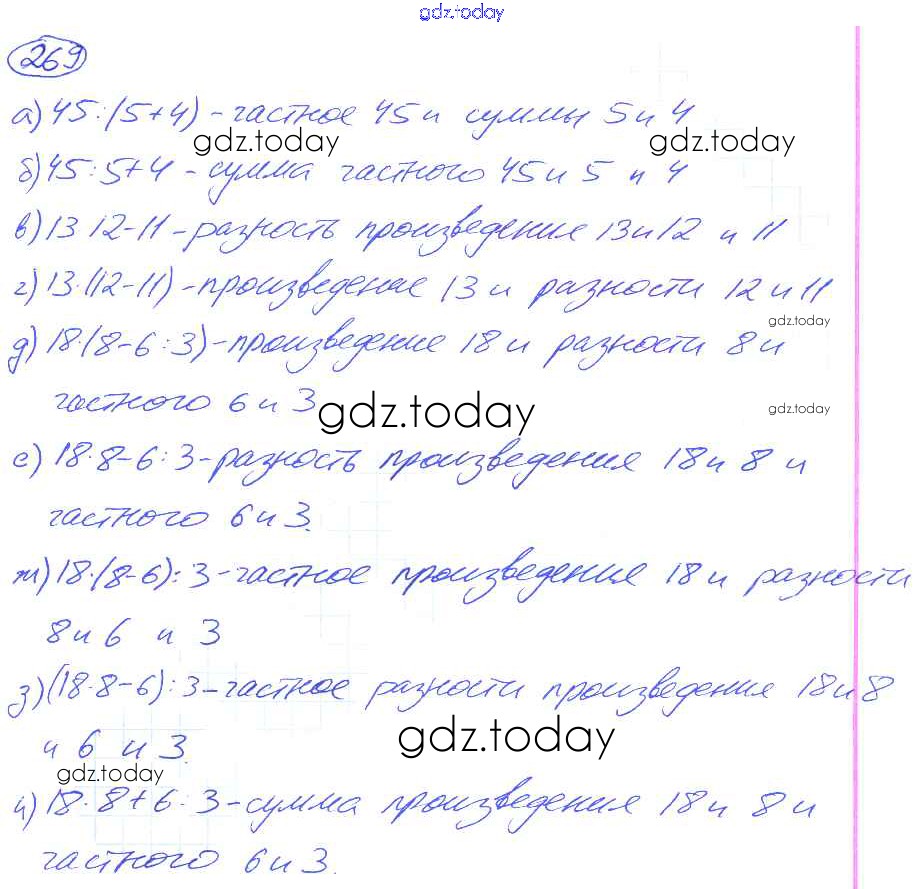 gdz.today
269
а) 45:(5+4) - частное 45 и суммы 5 и 4
gdz.today gdz.today
б) 45:5+4 - сумма частного 45 и 5 и 4
в) 13 12-11 - разность произведения 13 и 12 и 11
г) 13·(12-11) - произведение 13 и разности 12 и 11
gdz.today
д) 18·(8-6:3) - произведение 18 и разности 8 и
частного 6 и 3
gdz.today gdz.today
е) 18·8-6:3 - разность произведения 18 и 8 и
частного 6 и 3.
ж) 18·(8-6):3 - частное произведения 18 и разности
8 и 6 и 3
з) (18·8-6):3 - частное разности произведения 18 и 8
и 6 и 3.
gdz.today
gdz.today
и) 18·8+6:3 - сумма произведения 18 и 8 и
частного 6 и 3.